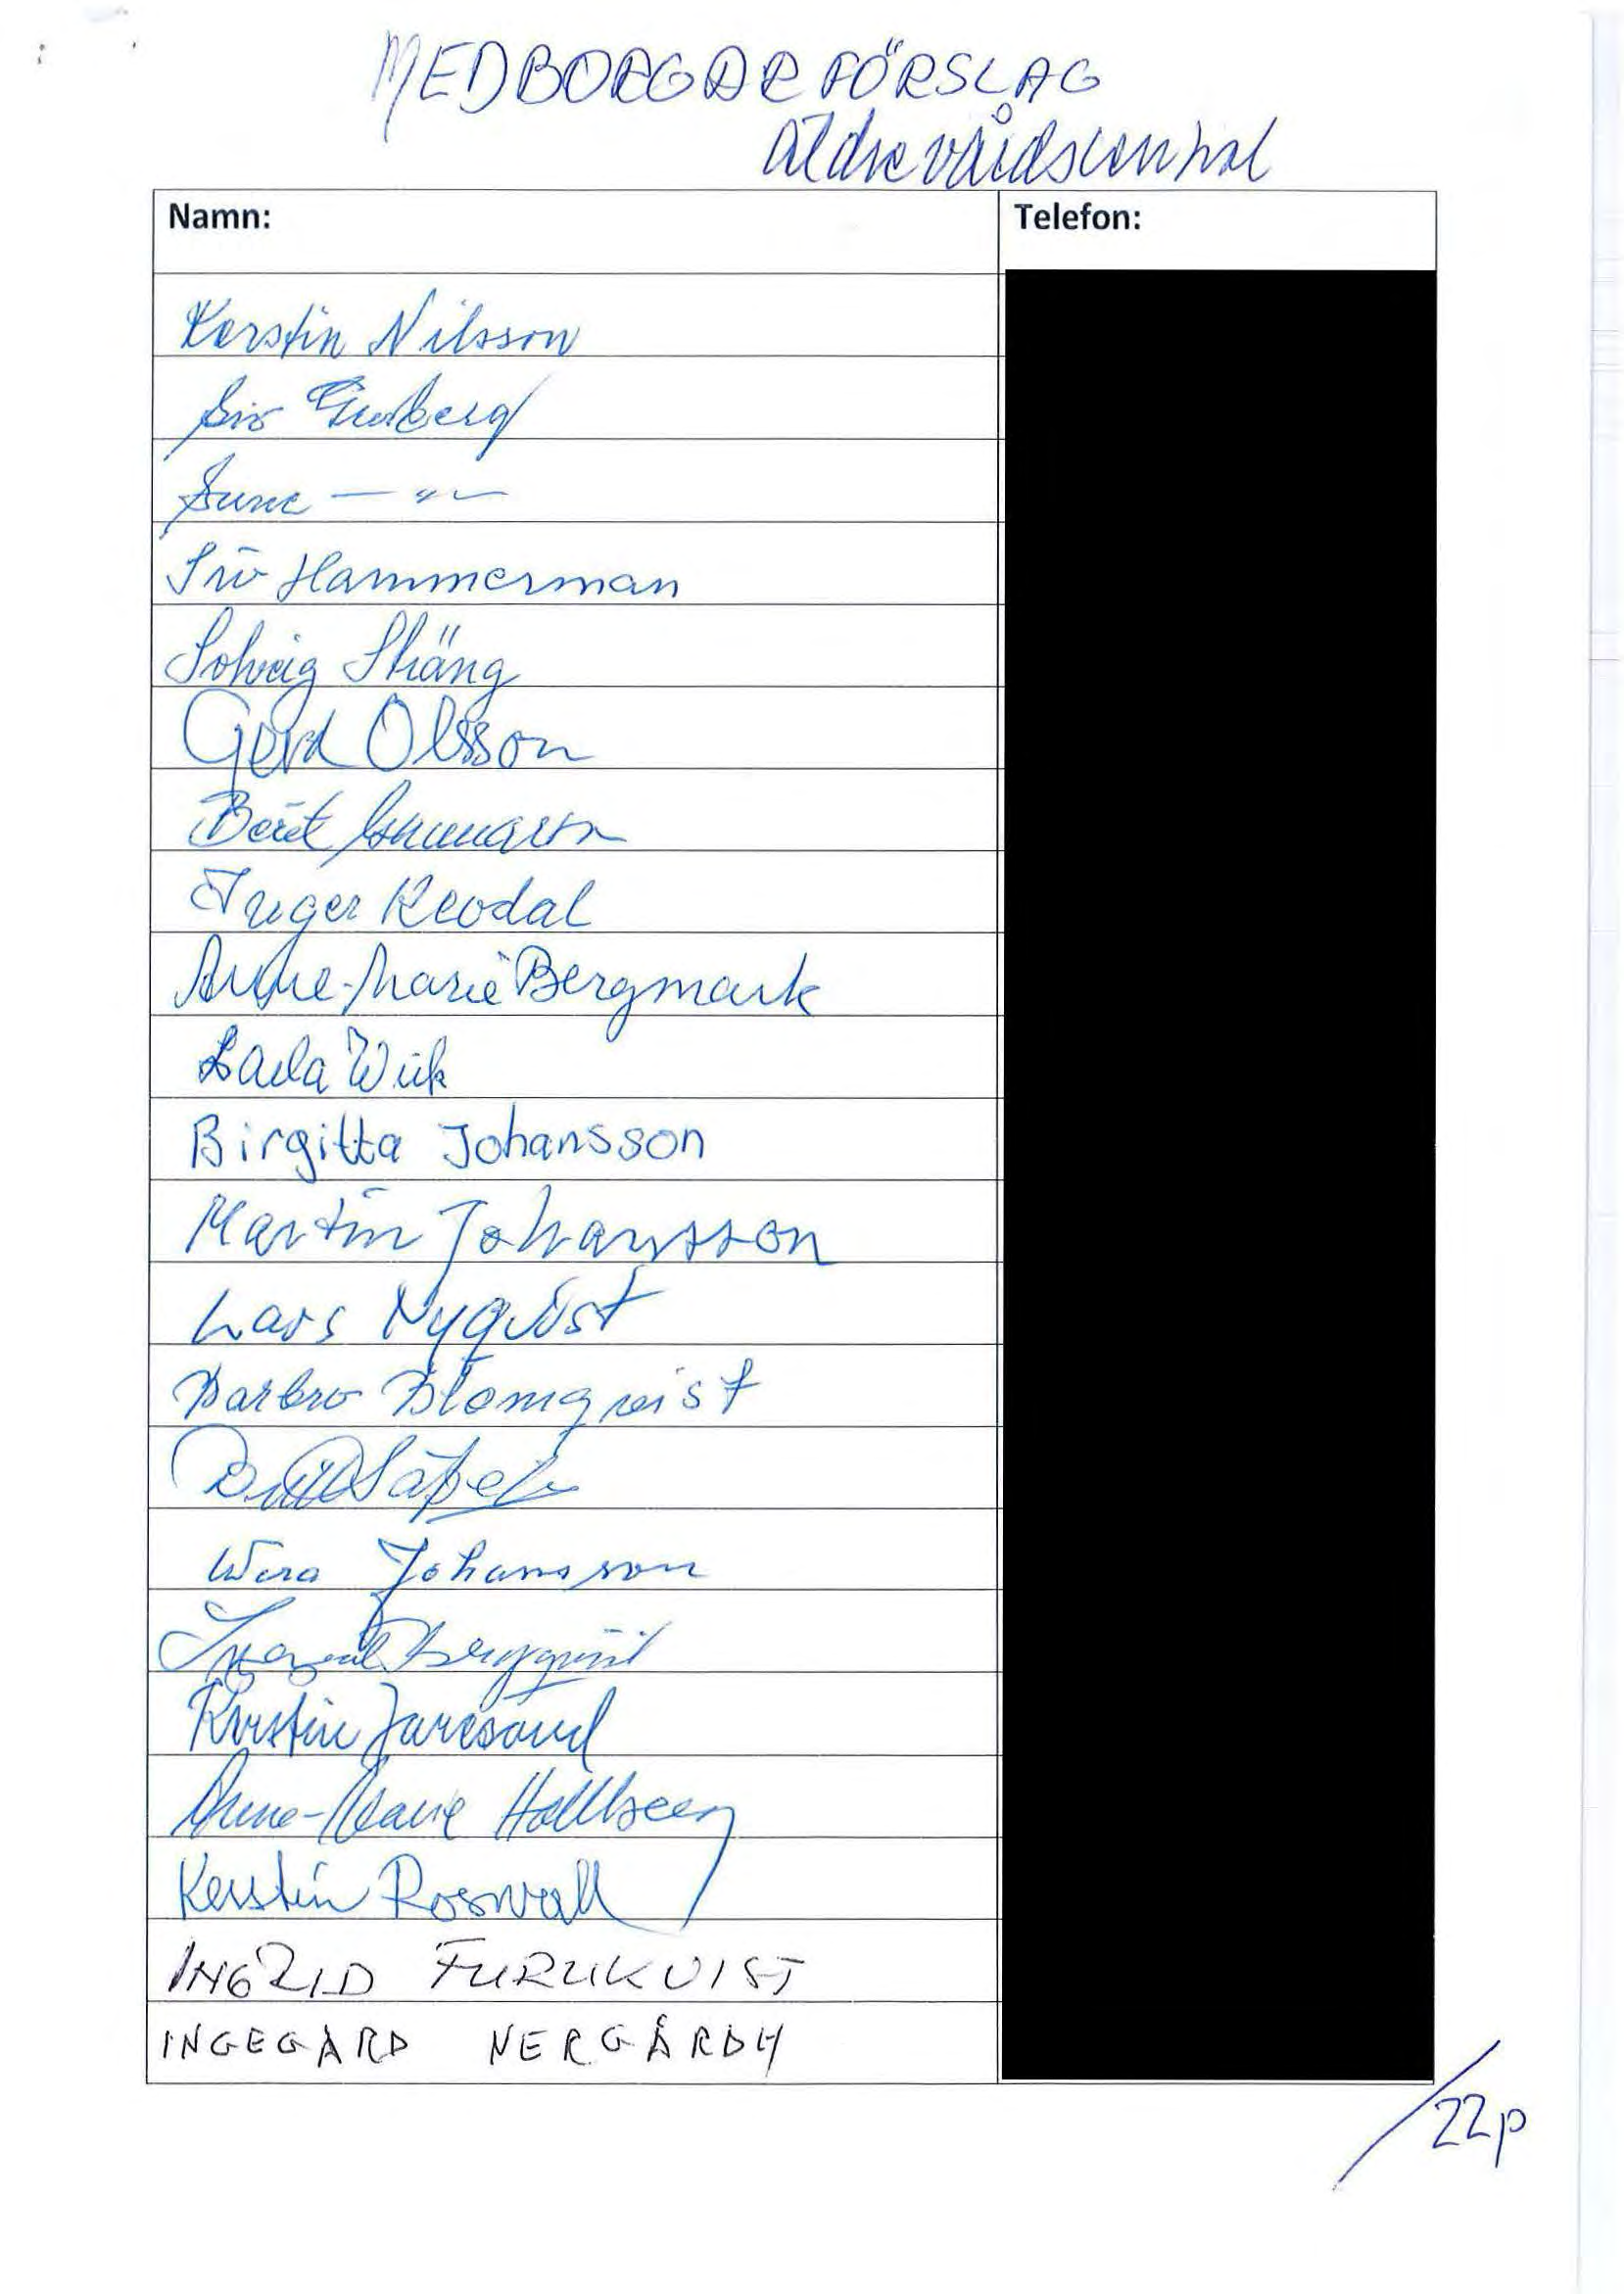 MEDBORGARFÖRSLAG
äldrevårdscentral
Namn: Telefon:
Kerstin Nilsson
Siv
Sune — " —
Siv Hammerman
Solveig Skäng
Gerd Olsson
Berit
Inger Reodal
Anne-Marie Bergmark
Laila Wiik
Birgitta Johansson
Martin Johansson
Lars Nyqvist
Barbro Blomqvist
Wera Johansson
Bergqvist
Kerstin
Anne-Marie Hallberg
Kerstin Roswall
INGRID FURUKVIST
INGEGÄRD NERGÅRDH
/22p